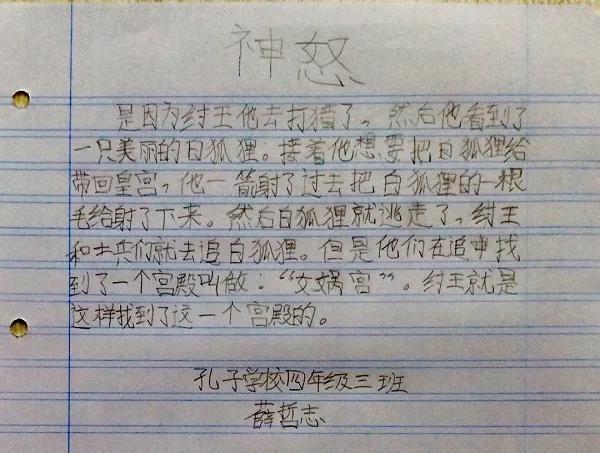 神怒
是因为纣王他去打猎了，然后他看到了
一只美丽的白狐狸。接着他想要把白狐狸给
带回皇宫，他一箭射了过去把白狐狸的一根
毛给射了下来。然后白狐狸就逃走了，纣王
和士兵们就去追白狐狸。但是他们在追中找
到了一个宫殿叫做：“女娲宫”。纣王就是
这样找到了这一个宫殿的。
孔子学校四年级三班
薛哲志